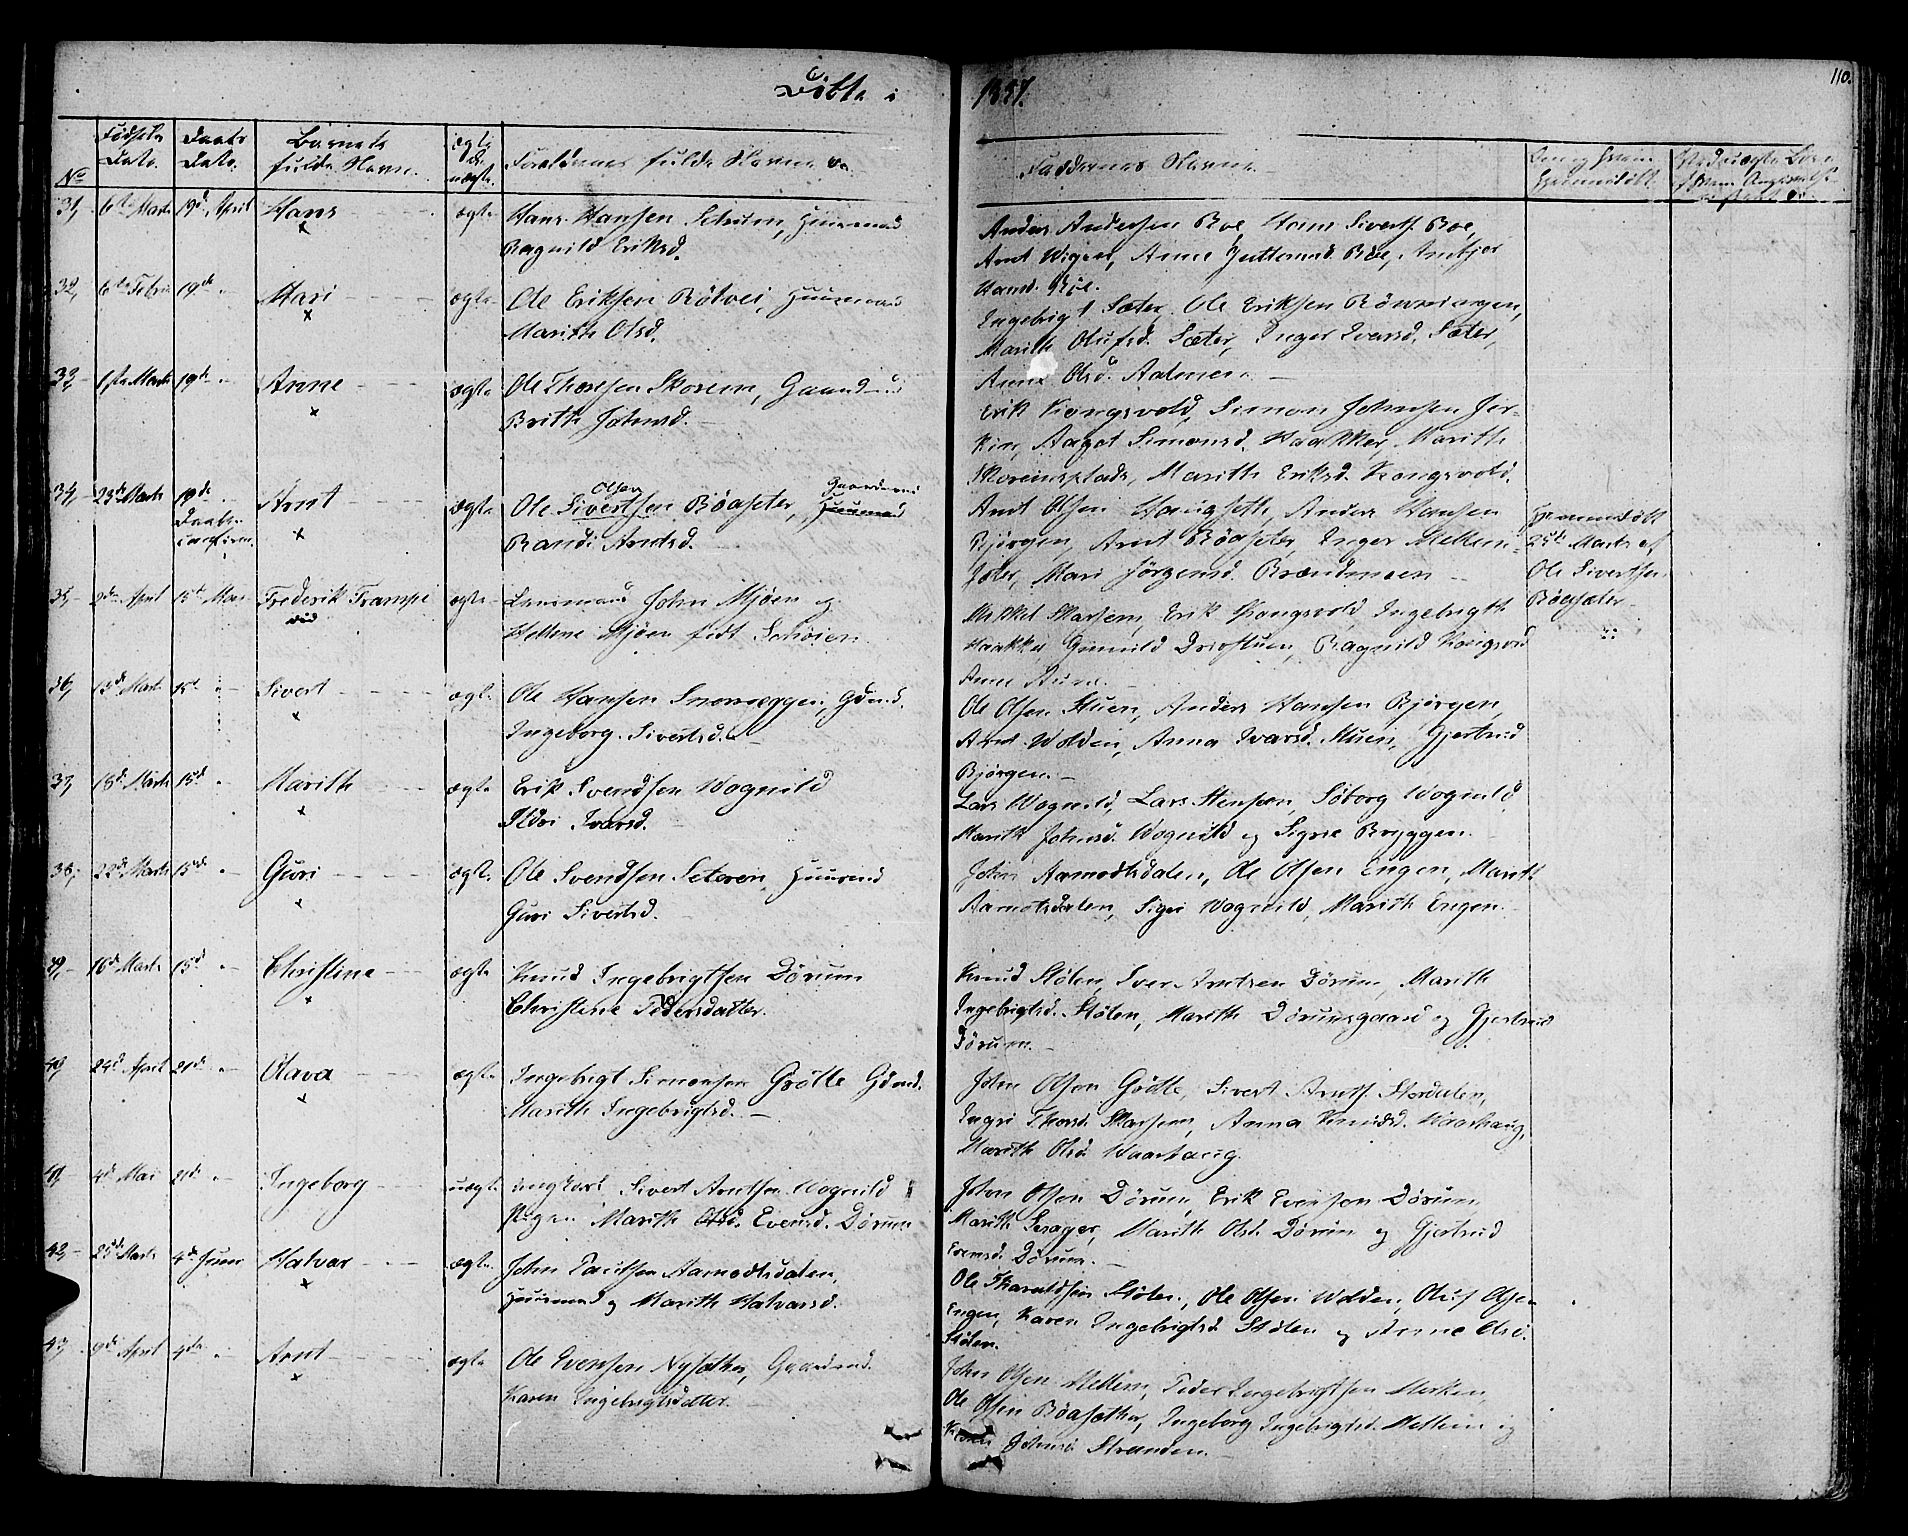 Døbte i 1857.
110.
No
Fødsels Dato.
Daabs Dato.
Barnets fulde Navn.
ægte el. uægte.
Forældrenes fulde Navne
Faddernes Navne
31, 6te Marts 19de April Hans ægte Hans Hansen Huusmand
Ragnild Eriksd.
Anders Andersen Boe, Siverts. Boe,
Arnt Anne Boe,
Hansd. Boe.
32, 6te Febru 19de " Mari ægte Ole Eriksen Huusmand
Marith Olsd.
Engebrigt Sæter, Ole Eriksen Rønningen,
Marith Olufsd. Sæter, Inger Ivarsd. Sæter,
Anne Olsd.
33, 1ste Marts 19de " Anne ægte Ole Thoresen Skorem, Gaardmand
Brith Johnsd.
Erik Kongsvold, Simon Johnsen Jer-
kin, Aagot Simonsd. Haakker, Marith
Marith Eriksd. Kongsvold.
34, 23de Marts 19de Arnt ægte Ole Sivertsen Olsen Bøasæter, Huusmand Gaardmand
Randi Arntsd.
Arnt Olsen Anders Hansen
Bjørgen, Arnt Bøasæter, Inger Mellem-
sæter, Mari Jørgensd. Brændmoen
Hjemmedøbt
25de Marts af
Ole Sivertsen
Bøasæter
35, 2den April 15de Mai Frederik Trampe ægte Lensmand John Mjøen og
Hellene Mjøen født
Mikkel Skarsem, Erik Kongsvold, Ingebrigth
Haakker Gunnild Drivstuen, Ragnild Kongsvold
Anne Aune.
36, 13de Marts 15de " Sivert ægte Ole Hansen Gdmd.
Ingeborg Sivertsd.
Ole Olsen Stuen, Anders Hansen Bjørgen,
Arnt Wolden, Anna Ivarsd. Stuen, Gjertrud
Bjørgen.
37, 18de Marts 15de " Marith ægte Erik Svendsen Wognild
Ildri Ivarsd.
Lars Wognild, Lars Stensen, Søborg Wognild
Marith Johnsd. Wognild og Sigrie Bryggen.
38, 22de Marts 15de " Guri ægte Ole Svendsen Seteren, Huusmd
Guri Sivertsd.
John Aamodtsdalen, Ole Olsen Engen, Marith
Aamotsdalen, Sigri Wognild, Marith Engen.
39, 16de Marts 15de " Christine ægte Knud Ingebrigtsen Dørum
Christine Pedersdatter.
Knud Stølen, Iver Arntsen Dørum, Marith
Ingebrigtsd. Stølen, Marith Dørumsgaard og Gjertrud
Dørum.
40, 29de April 21de " Olava ægte Ingebrigt Simonsen Grøtte Gdmd.
Marith Ingebrigtsd.
John Olsen Grøtte, Sivert Arnts. Stordalen,
Engri Thorsd. Skarsem, Anna Knudsd. Haarhaug,
Marith Olsd. Haarhaug.
41, 4de Mai 21de " Ingeborg uægte Ungkarl Sivert Arntsen Wognild
Pigen Marith Evensd. Dørum
John Olsen Dørum, Erik Evensen Dørum
Marith Marith Olsd. Dørum og Gjertrud
Evensd. Dørum.
42, 25de Marts 4de Juni Halvor ægte John Aamodtsdalen,
Huusmand og Marith Halvorsd.
Ole Haraldsen Stølen, Ole Olsen Wolden, Oluf Olsen
Engen, Karen Ingebrigtsd. Stølen og Anne Olsd.
Stølen.
43, 9de April 4de " Arnt ægte Ole Evensen Nysæther, Gaardmd.
Karen Ingebrigtsdatter.
John Olsen Mellem, Peder Ingebrigtsen
Ole Olsen Bøasæther, Ingeborg Ingebrigtsd. Mellem og
Johnsd. Stranden.